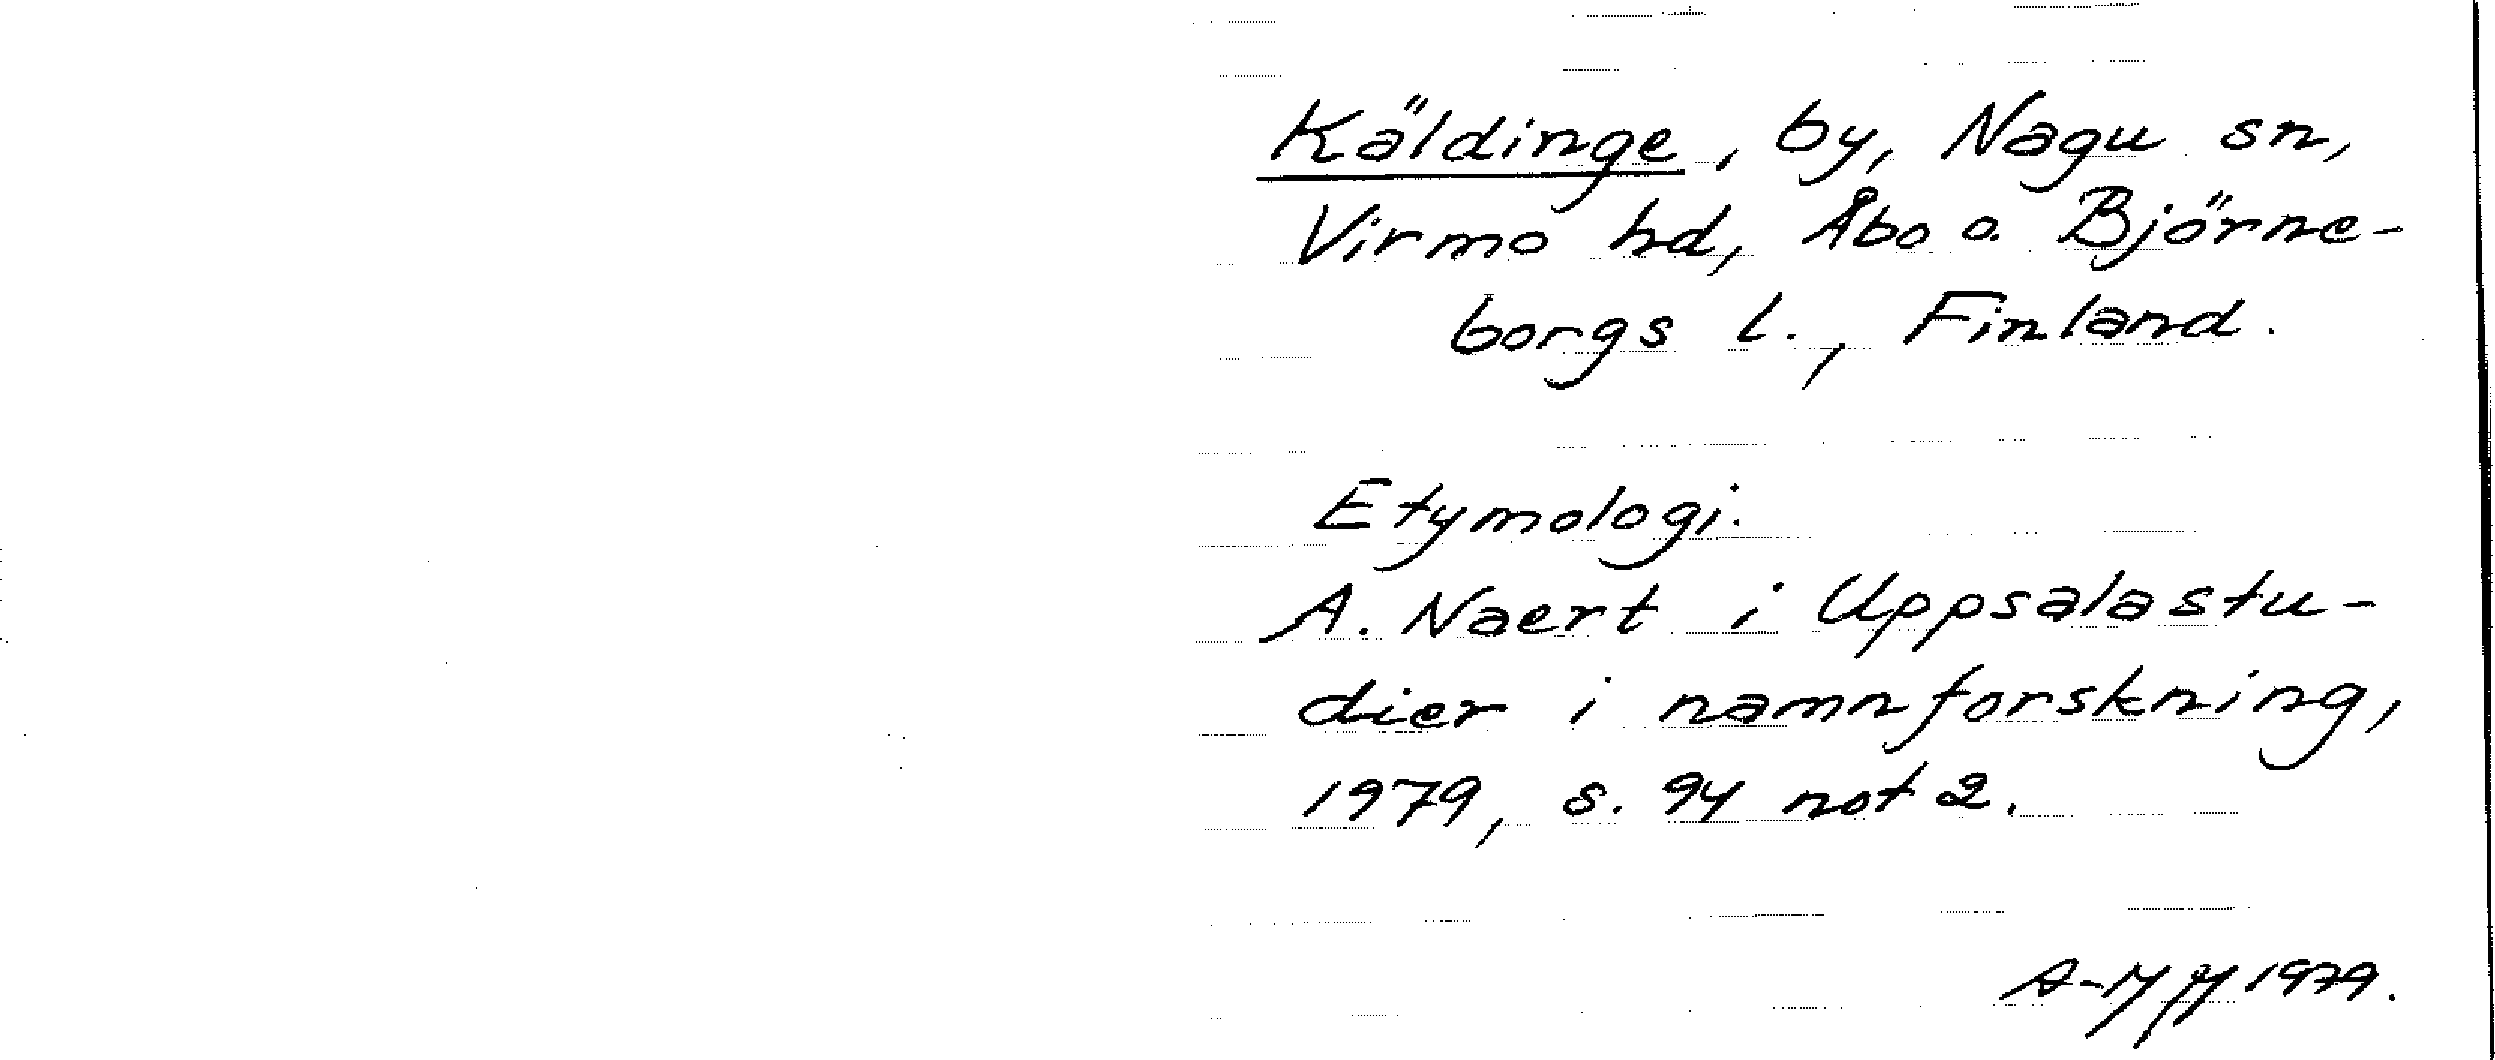 Käldinge, by, Nagu sn,
Virmo hd, Åbo o. Björne-
borgs l., Finland.
Etymologi.
A. Naert i Uppsalastu-
dier i namnforskning,
1979, s. 94 not 2.
1979.